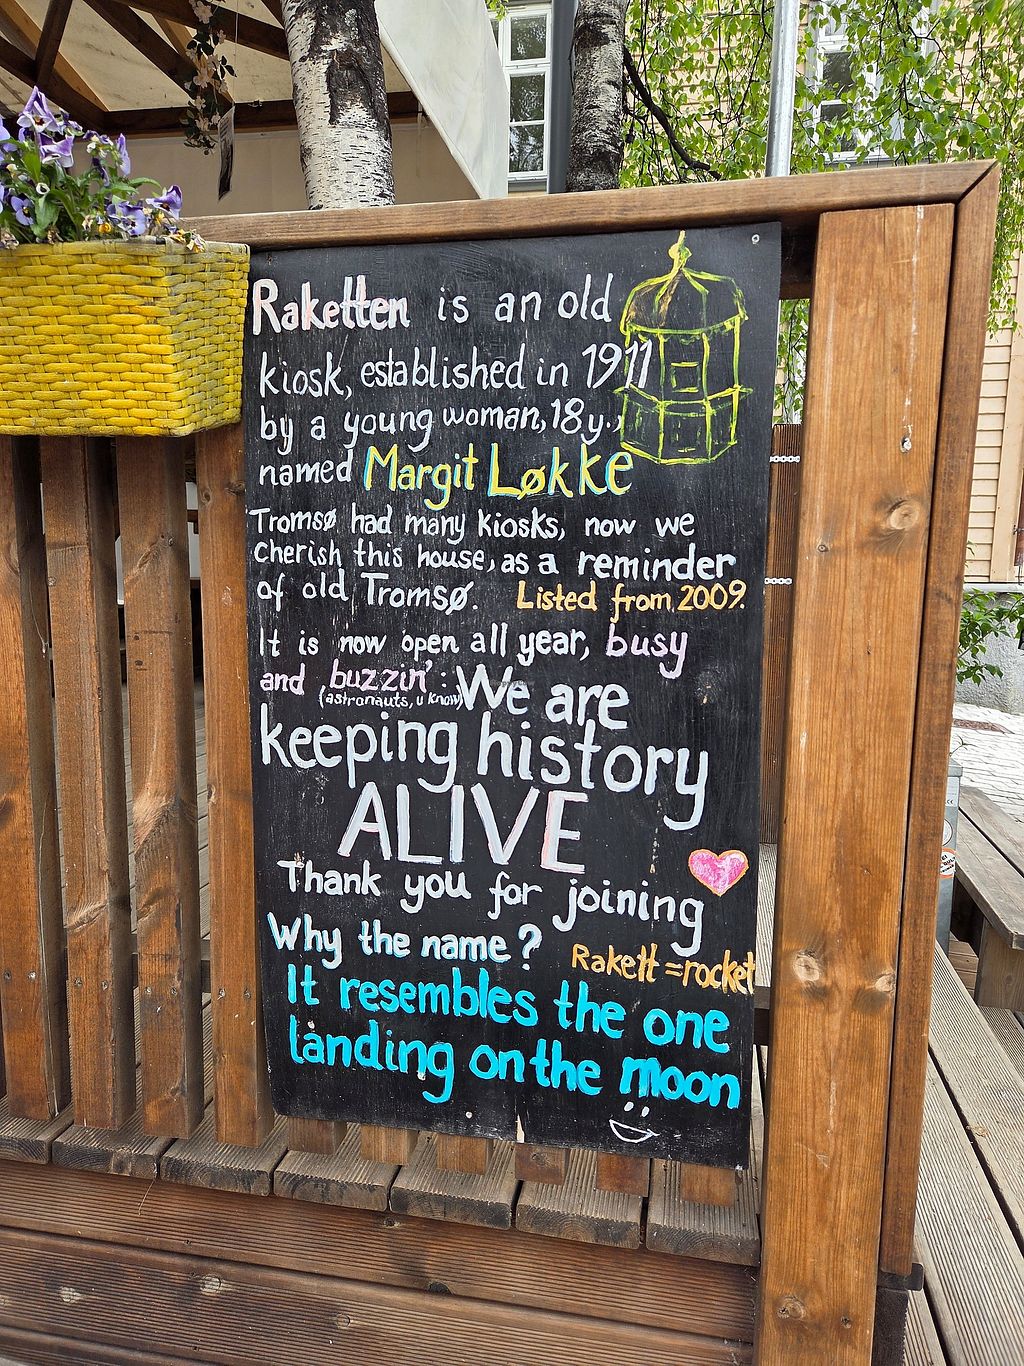 Raketten is an old
kiosk, established in 1911
by a young woman, 18 y.,
named Margit Løkke
Tromsø had many kiosks, now we
cherish this house, as a reminder
of old Tromsø. Listed from 2009.
It is now open all year, busy
and buzzin': We are
(astronauts, u know)
keeping history
ALIVE
Thank you for joining
Why the name?
Rakett = rocket
It resembles the one
landing on the moon